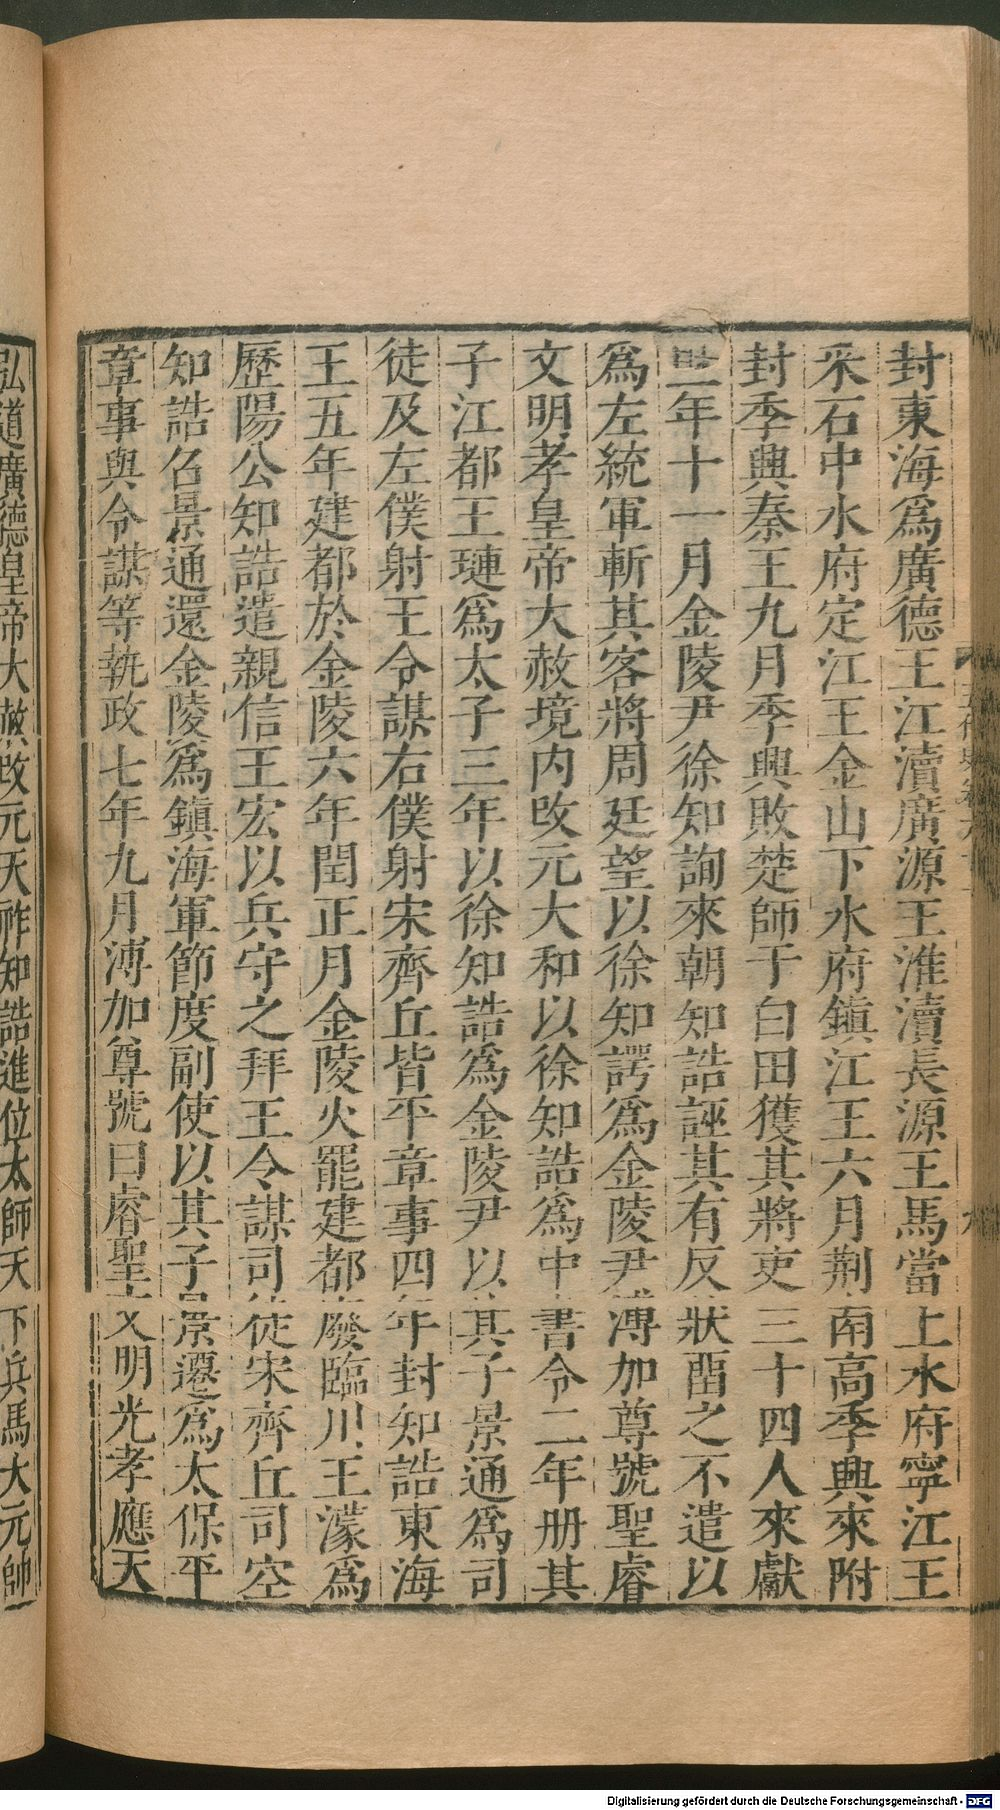 封東海爲廣德王江瀆廣源王淮瀆長源王馬當上水府寧江王
采石中水府定江王金山下水府鎮江王六月荆南高季興來附
封季興秦王九月季興敗楚師于白田獲其將吏三十四人來獻
年十一月金陵尹徐知詢來朝知誥誣其有反狀畱之不遣以
爲左統軍斬其客將周廷望以徐知諤爲金陵尹溥加尊號聖睿
文明孝皇帝大赦境内改元大和以徐知誥爲中書令二年册其
子江都王璉爲太子三年以徐知誥爲金陵尹以其子景通爲司
徒及左僕射王令謀右僕射宋齊丘皆平章事四年封知誥東海
王五年建都於金陵六年閏正月金陵火罷建都廢臨川王濛爲
歷陽公知誥遣親信王宏以兵守之拜王令謀司徒宋齊丘司空
知誥召景通還金陵爲鎮海軍節度副使以其子景遷爲太保平
章事與令謀等執政七年九月溥加尊號曰睿聖文明光孝應天
弘道廣德皇帝大赦改元天祚知誥進位太師天下兵馬大元帥
Digitalisierung gefördert durch die Deutsche Forschungsgemeinschaft - DFG